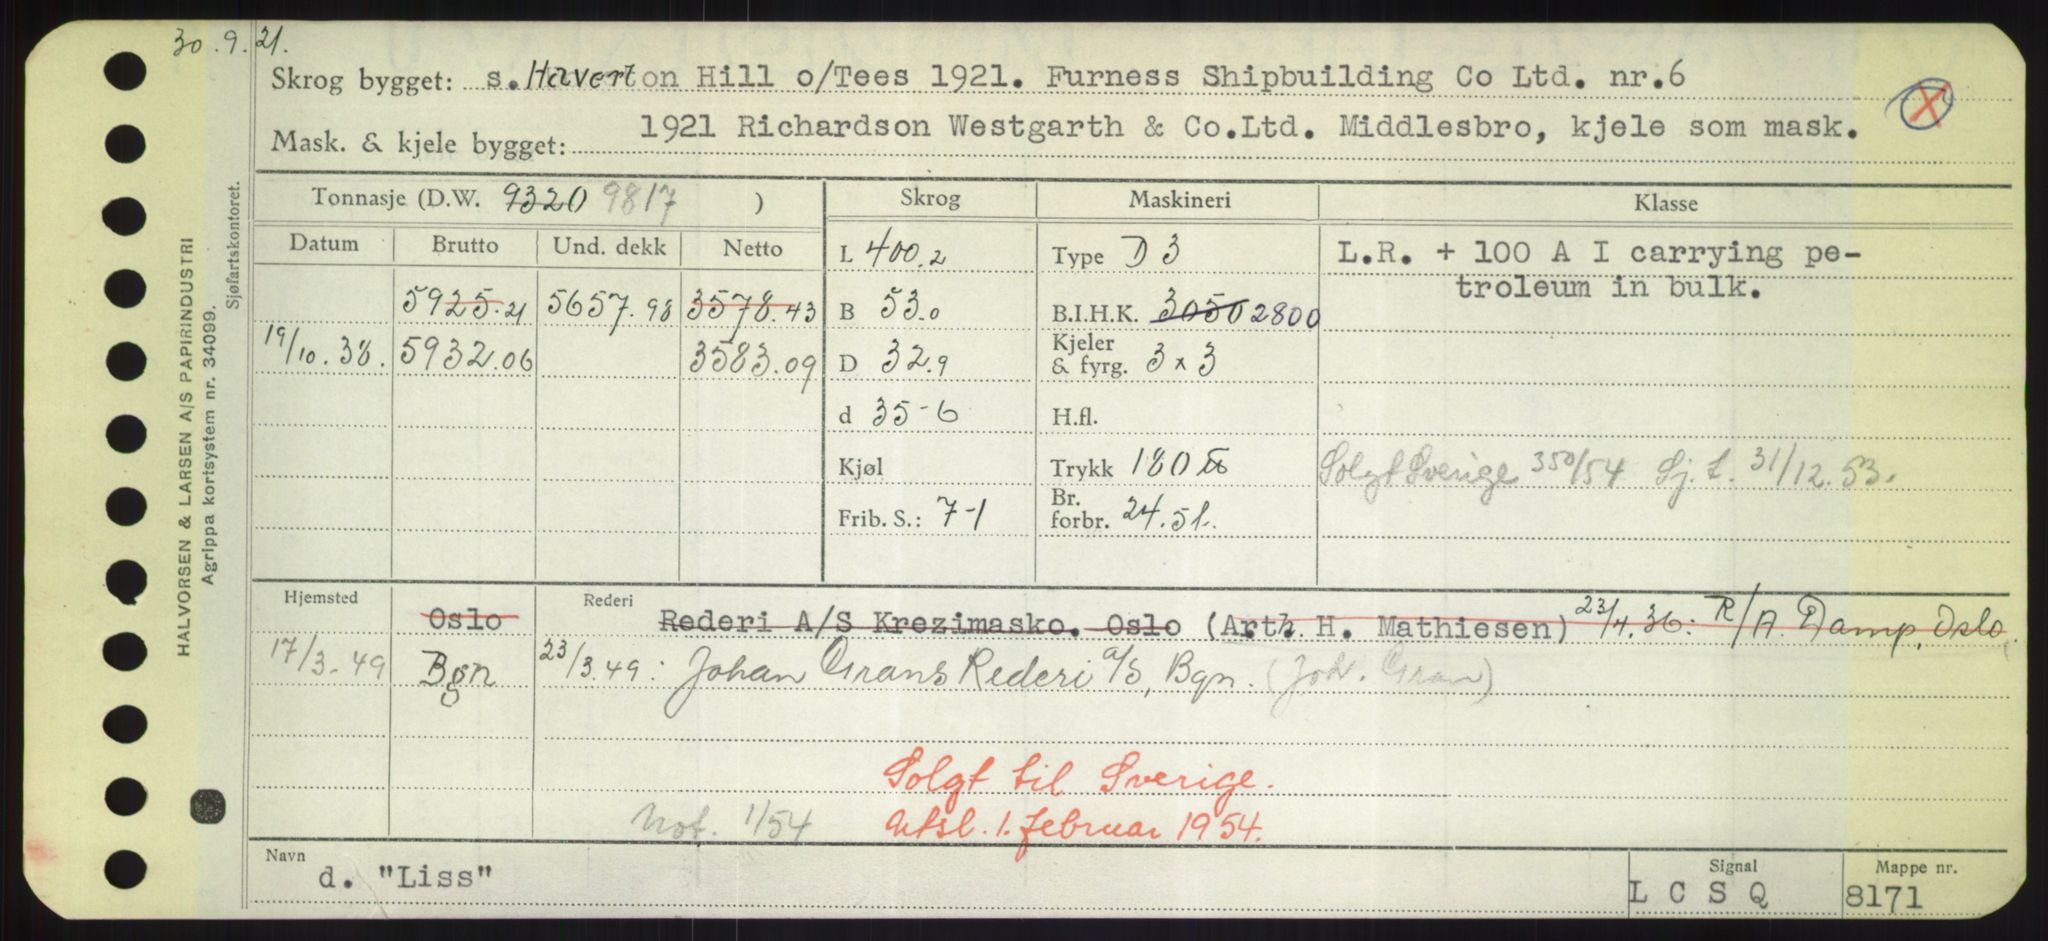 30.9.21.
Skrog bygget: s. Haverton Hill o/Tees 1921. Furness Shipbuilding Co Ltd. nr.6
Mask. & kjele bygget: 1921 Richardson Westgarth & Co.Ltd. Middlesbro, kjele som mask.
Tonnasje (D.W. 9320 9817 )
Skrog
Maskineri
Klasse
Datum Brutto Und. dekk Netto
L 400.2
Type D 3
L.R. + 100 A I carrying pe-
troleum in bulk.
5925.21 5657.98 3578.43
B 53.0
B.I.H.K. 3050 2800
19/10.38. 5932.06 3583.09
D 32.9
Kjeler
& fyrg. 3 x 3
d 35-6
H.fl.
Kjøl
Trykk 180 lb
Solgt Sverige 350/54 Sj. t. 31/12.53.
Frib. S.: 7-1
Br.
forbr. 24.5 t.
Hjemsted Oslo
Rederi Rederi A/S Krezimasko. Oslo (Arth. H. Mathiesen) 23/4.36: R/A. Damp, Oslo.
17/3-49 Bgn 23/3.49: Johan Grans Rederi a/s, Bgn. (Joh. Gran)
Solgt til Sverige.
Not. 1/54 Utsl. 1. februar 1954.
Navn d. "Liss"
Signal L C S Q
Mappe nr. 8171
HALVORSEN & LARSEN A/S PAPIRINDUSTRI
Agrippa kortsystem nr. 34099.
Sjøfartskontoret.